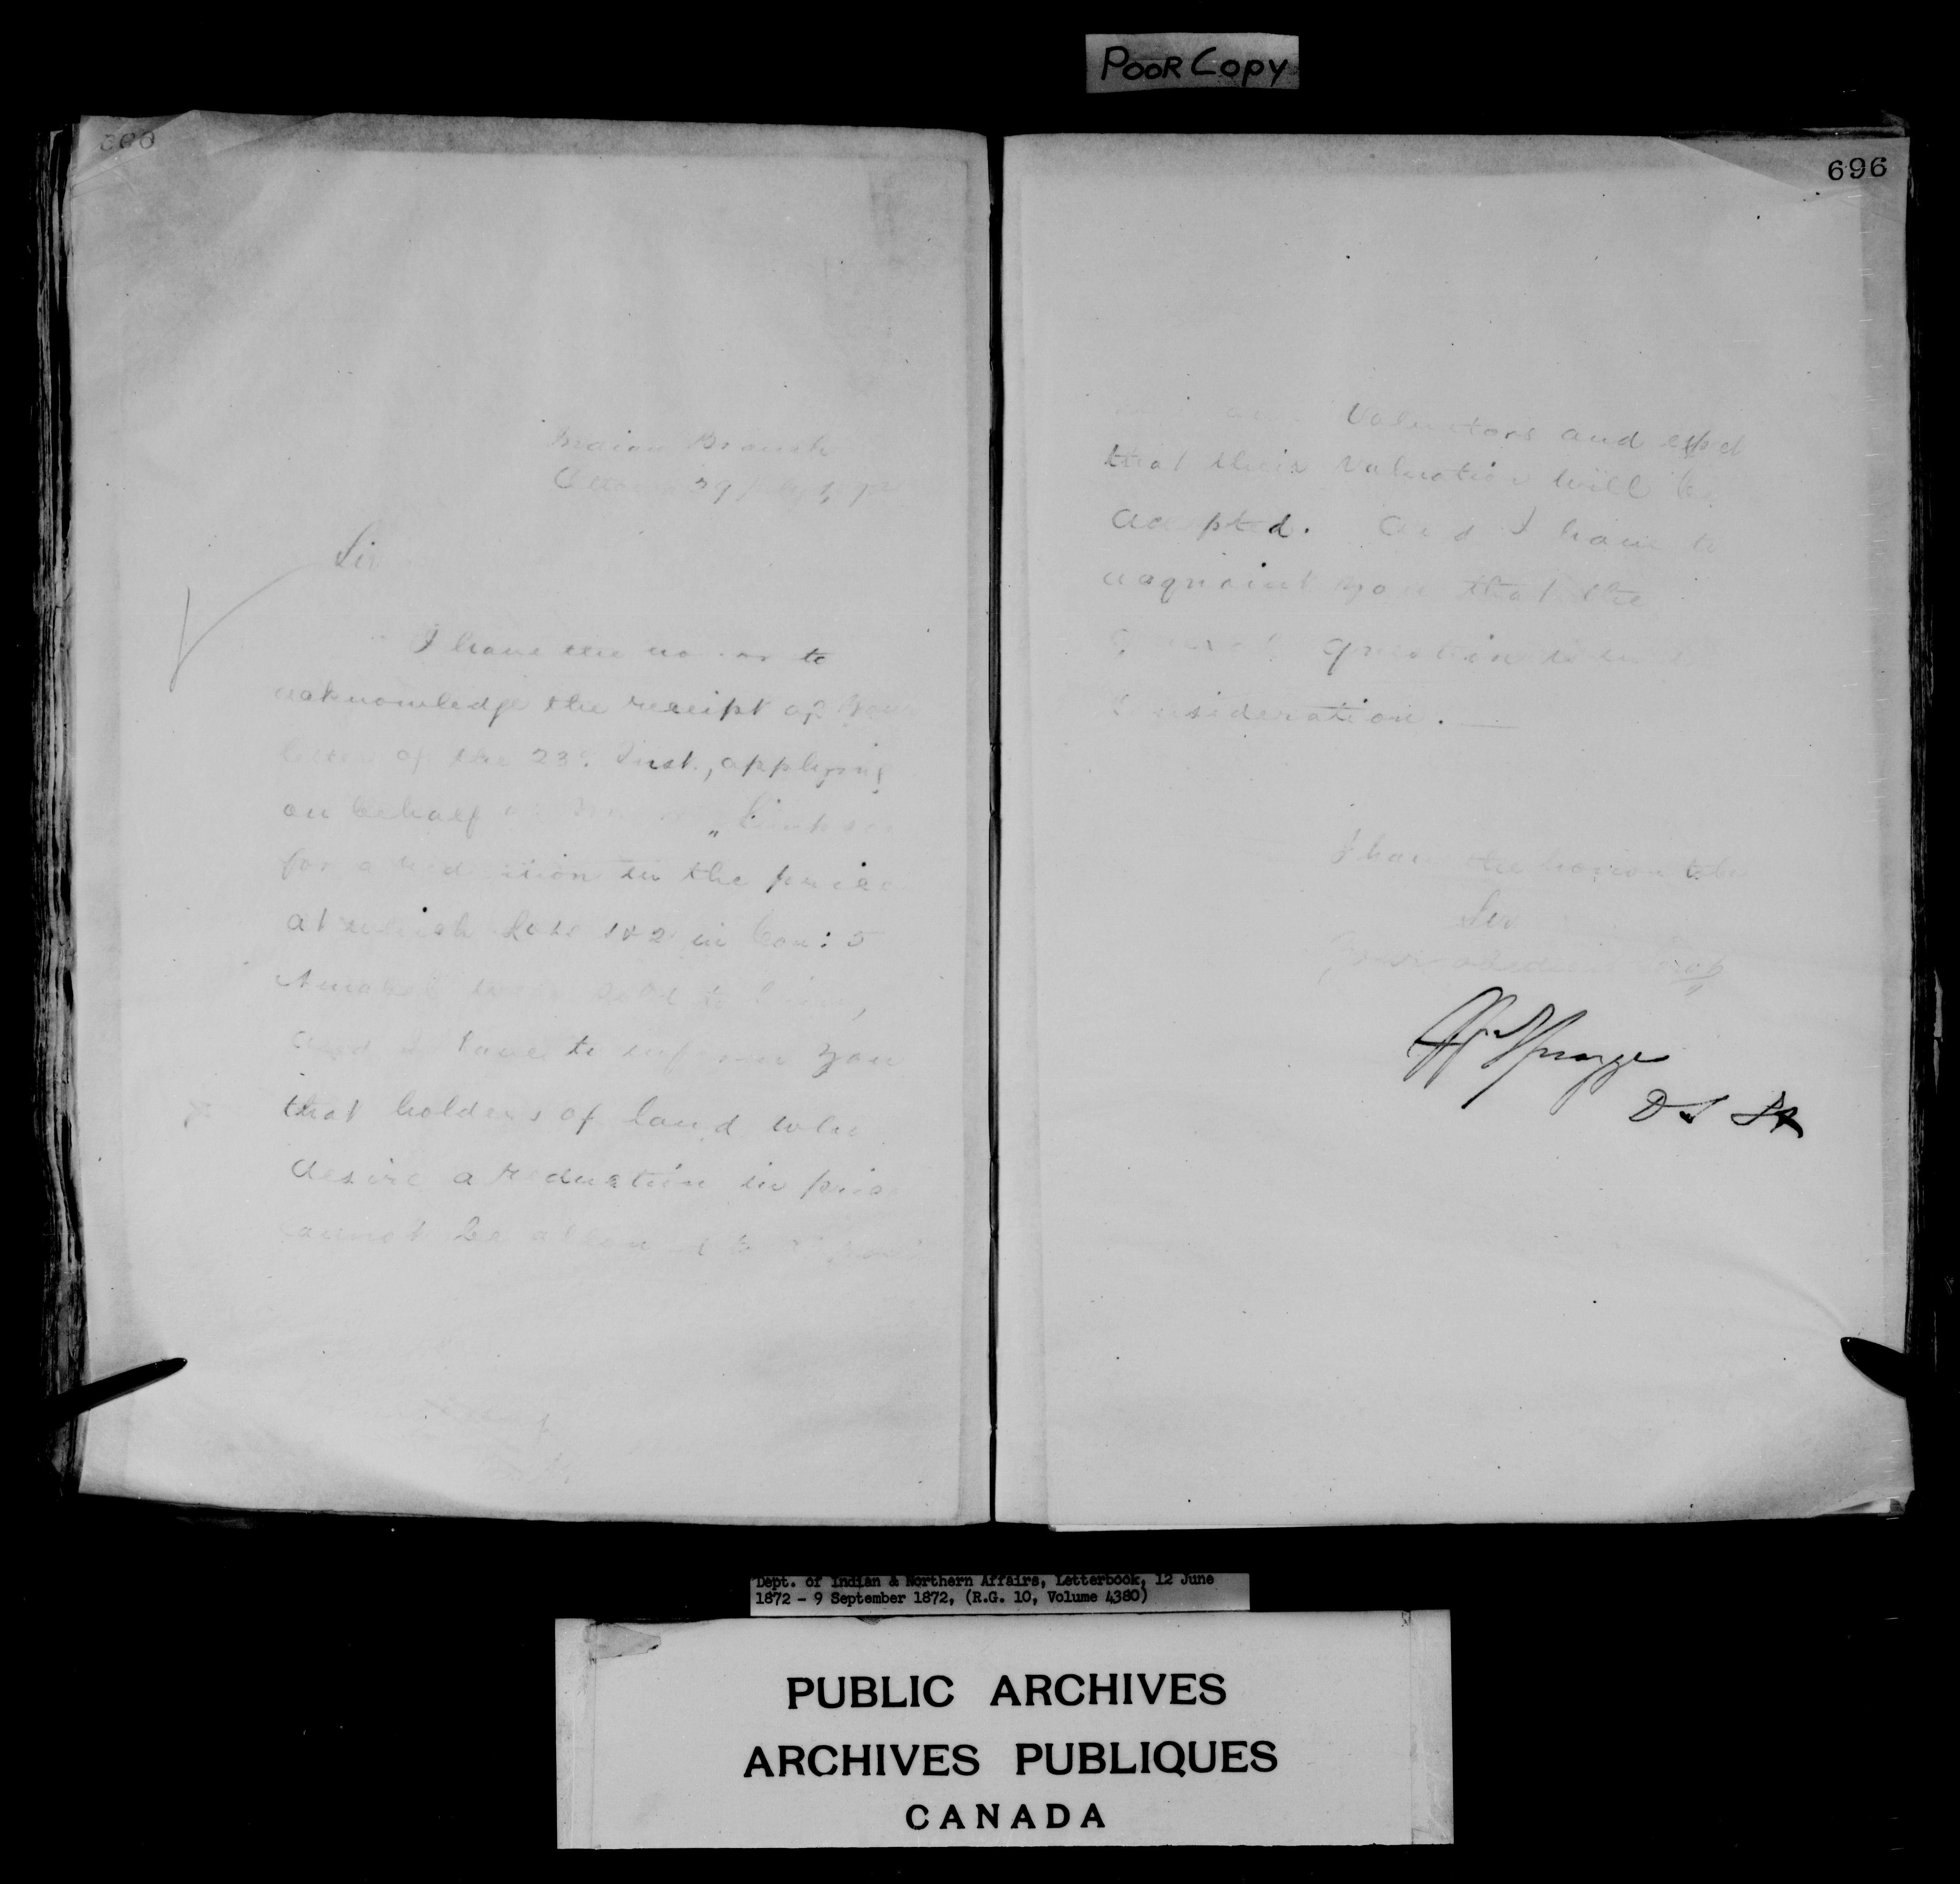 POOR COPY
696
Indian Branch
Ottawa 29 July 1872
Sir
I have the honor to
acknowledge the receipt of your
letter of the 23d Inst., applying
on behalf of
for a reduction in the price
at which Lots 1 & 2 in Con: 5
Amabel were sold to him,
and I have to inform you
that holders of land who
desire a reduction in price
cannot be allowed to
Valuators and expect
that their valuation will be
accepted. And I have to
acquaint you that the
question is under
consideration.
I have the honor to be
Sir
Your obedient Servt
Wm Spragge
D S I A
Dept. of Indian & Northern Affairs, Letterbook, 12 June
1872 - 9 September 1872, (R.G. 10, Volume 4380)
PUBLIC ARCHIVES
ARCHIVES PUBLIQUES
CANADA